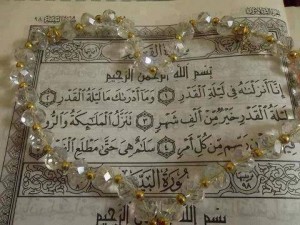 بِسْمِ اللَّهِ الرَّحْمَٰنِ الرَّحِيمِ
إِنَّا أَنزَلْنَٰهُ فِي لَيْلَةِ الْقَدْرِ ١ وَمَا أَدْرَىٰكَ مَا لَيْلَةُ الْقَدْرِ ٢
لَيْلَةُ الْقَدْرِ خَيْرٌ مِّنْ أَلْفِ شَهْرٍ ٣ تَنَزَّلُ الْمَلَٰٓئِكَةُ وَالرُّو
مِّن كُلِّ أَمْرٍ ٤ سَلَٰمٌ هِيَ حَتَّىٰ مَطْلَعِ الْفَجْرِ
سُورَةُ الْبَيِّنَةِ
٩٨
بِسْمِ اللَّهِ الرَّحْمَٰنِ الرَّحِيمِ